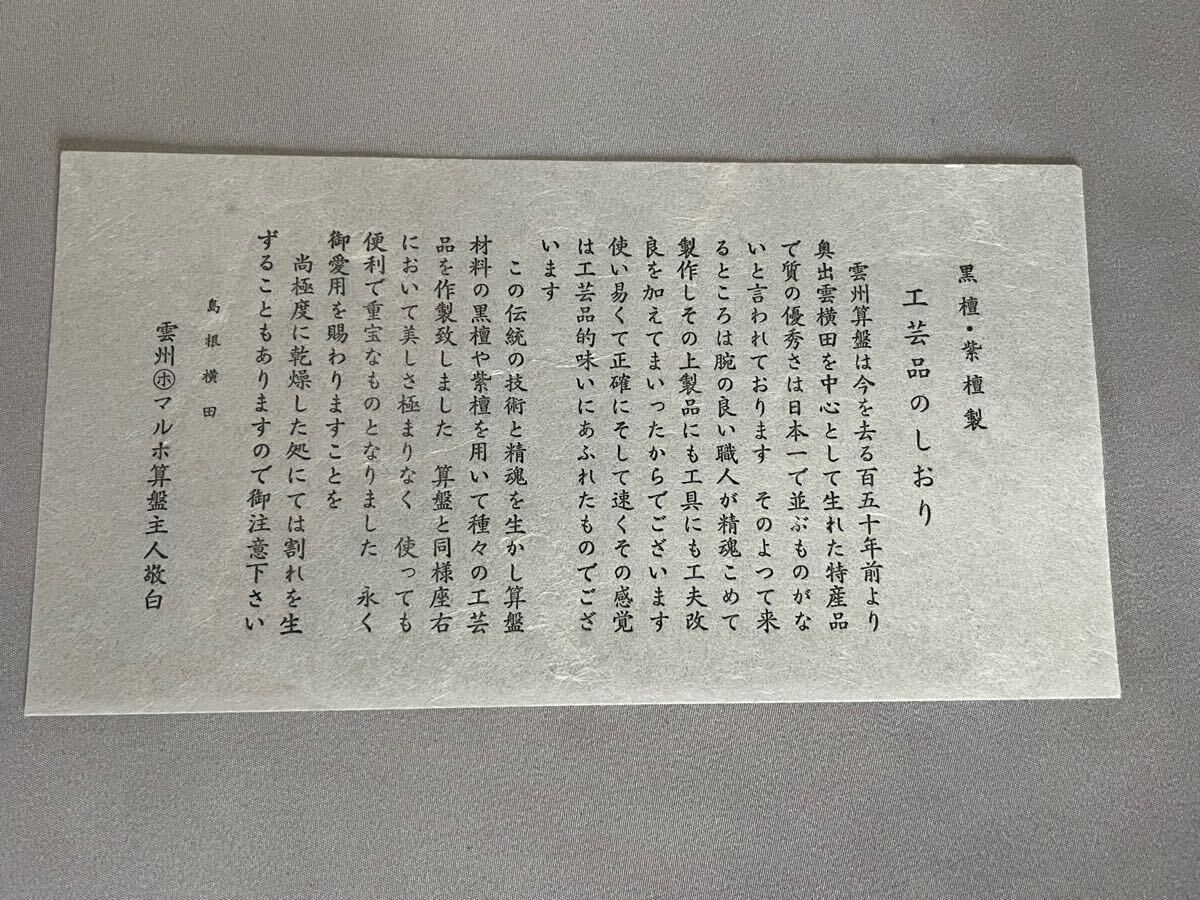 黒檀・紫檀製
工芸品のしおり
雲州算盤は今を去る百五十年前より
奥出雲横田を中心として生れた特産品
で質の優秀さは日本一で並ぶものがな
いと言われております　そのよつて来
るところは腕の良い職人が精魂こめて
製作しその上製品にも工具にも工夫改
良を加えてまいったからでございます
使い易くて正確にそして速くその感覚
は工芸品的味いにあふれたものでござ
います
この伝統の技術と精魂を生かし算盤
材料の黒檀や紫檀を用いて種々の工芸
品を作製致しました　算盤と同様座右
において美しさ極まりなく　使っても
便利で重宝なものとなりました　永く
御愛用を賜わりますことを
尚極度に乾燥した処にては割れを生
ずることもありますので御注意下さい
島根横田
雲州㋭マルホ算盤主人敬白